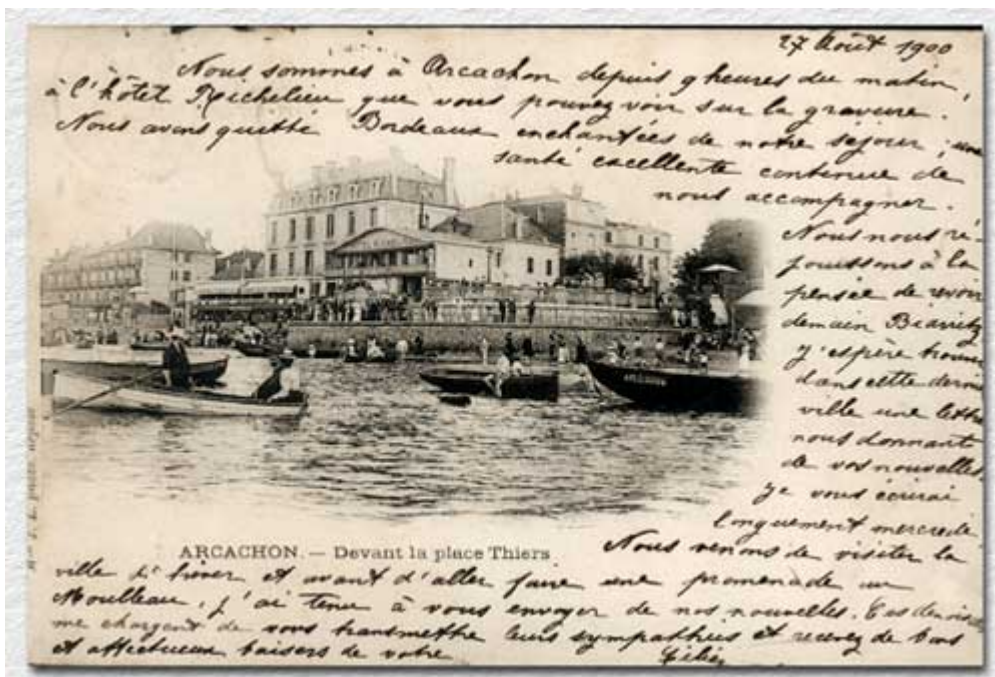 27 Août 1900
Nous sommes à Arcachon depuis 9 heures du matin,
à l'hôtel Richelieu que vous pouvez voir sur la gravure.
Nous avons quitté Bordeaux enchantées de notre séjour ; une
santé excellente continue de
nous accompagner.
Nous nous ré-
jouissons à la
pensée de revoir
demain Biarritz
J'espère trouver
dans cette
ville une lettre
nous donnant
de vos nouvelles.
Je vous écrirai
longuement mercredi
ARCACHON. — Devant la place Thiers
Nous venons de visiter la
ville d'hiver et avant d'aller faire une promenade au
Moulleau, j'ai tenu à vous envoyer de nos nouvelles. Ces
me chargent de vous transmettre leurs sympathies et recevez de bons
et affectueux baisers de votre